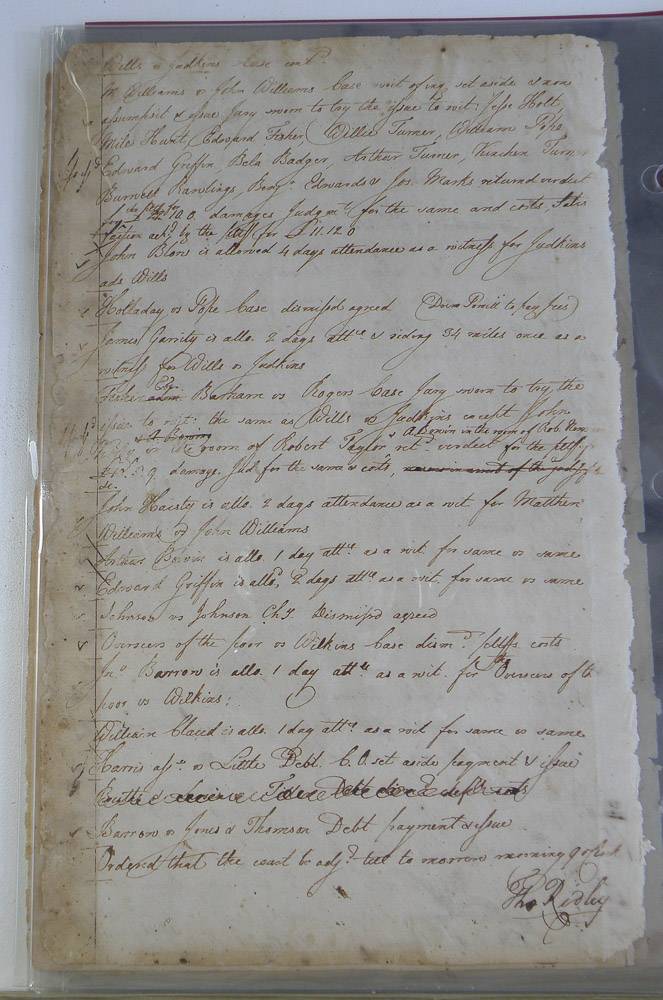 Wills vs Judkins Case cont.d
M Williams vs John Williams Case writ of inq. set aside & non
assumpsit & issue Jury sworn to try the issue to wit: Jesse Holt,
Mile Hunt, Edward Fisher, Willie Turner, William Pope,
Edward Griffin, Bela Badger, Arthur Turner, Turner
Burwell Rawlings, Benj.n Edwards & Jos. Marks returned verdict
for 10 0 damages Judgm.t for the same and costs. Satis
faction ack.d by the pltff for £ 11.12.0
John Blow is allowed 4 days attendance as a witness for Judkins
ads Wills
Holladay vs Pope Case dismissd agreed (Down to pay fees)
James Garrity is allo. 2 days att.ce & riding 34 miles once as a
witness for Wills vs Judkins
Exr.
Barham vs Rogers Case Jury sworn to try the
issue to wit: the same as Wills vs Judkins except John
& A Bowin in the room of Rob
in the room of Robert Taylor ret.d verdict for the pltff
damage. Jud. for the same & costs,
John Haisty is allo. 2 days attendance as a wit. for Matthew
Williams vs John Williams
Arthur Bowin is allo. 1 day att.ce as a wit. for same vs same
Edward Griffin is allo.d 2 days att.ce as a wit. for same vs same
Johnson vs Johnson Ch.y Dismissd agreed
Overseers of the poor vs Wilkins Case dism.d pltffs. costs
Jn.o Barrow is allo. 1 day att.ce as a wit. for the Overseers of the
poor vs Wilkins;
William Claud is allo. 1 day att.ce as a wit for same vs same
Harris ass.ee vs Little Debt. C.O. set aside payment & issue
Debt dis.d defts costs
Barrow vs Jones & Thomson Debt payment & issue
Ordered that the court be adj.d till to morrow morning 9 oClock
Tho Ridley